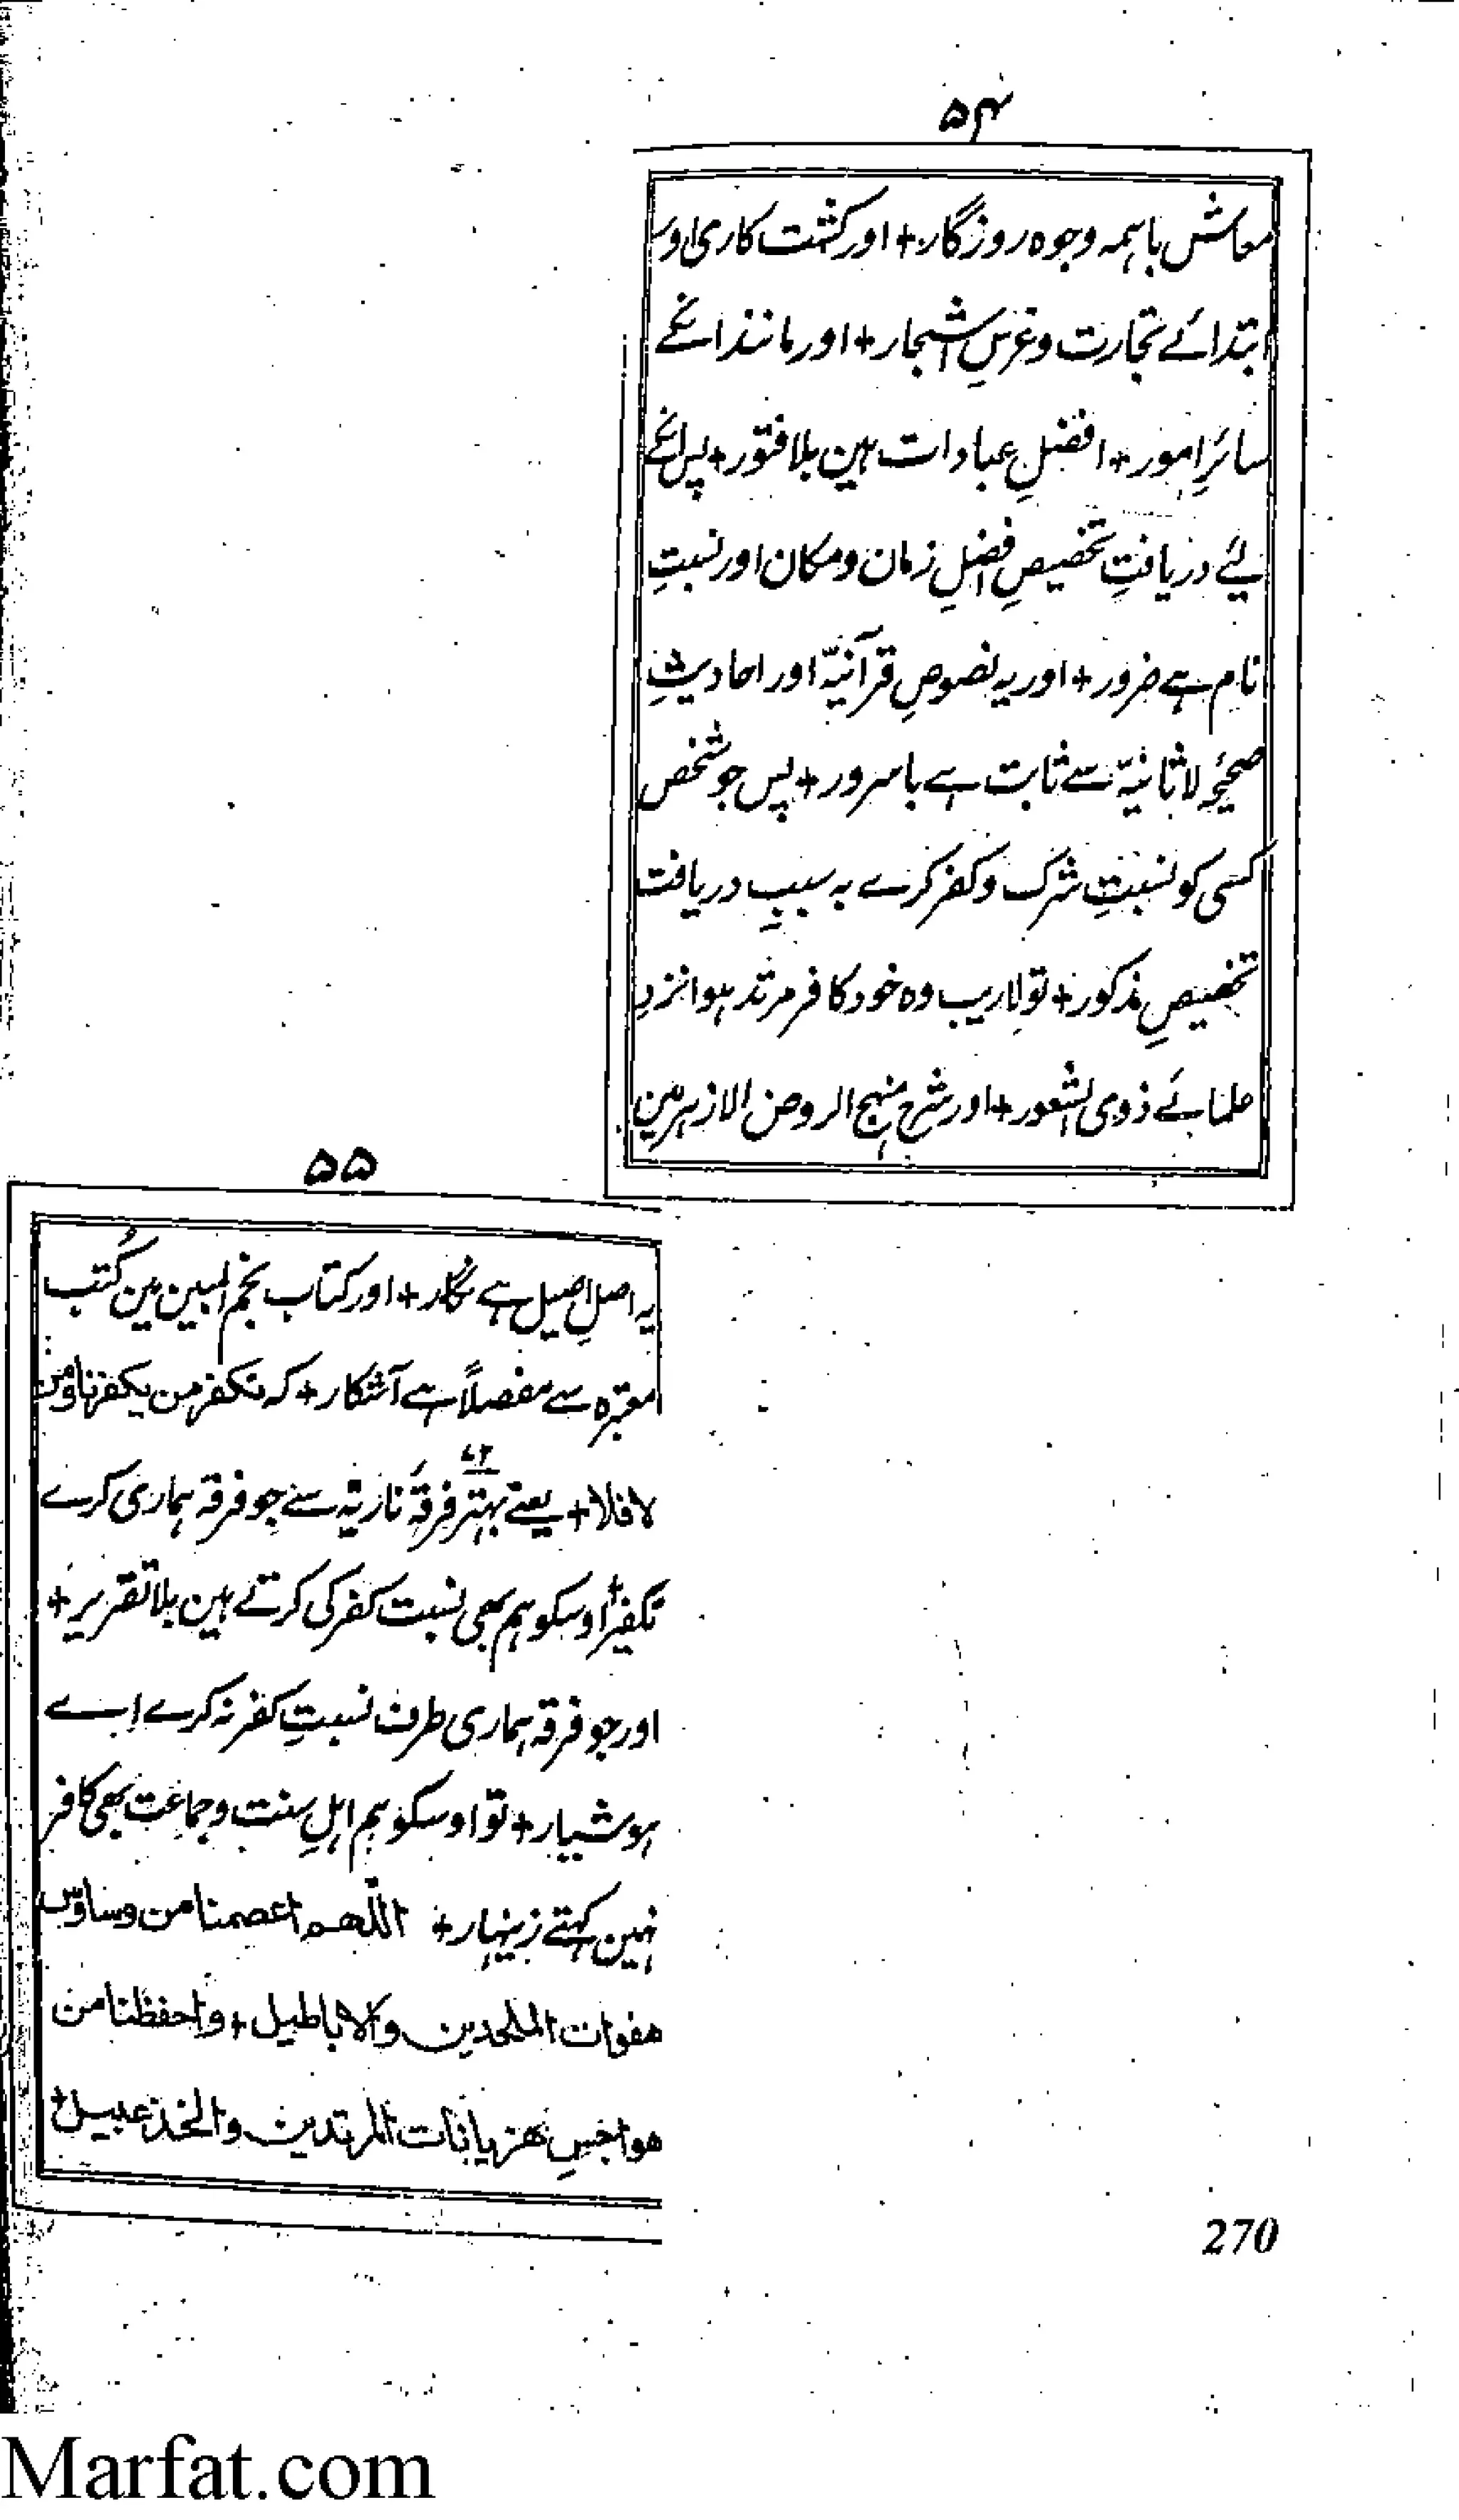 ۵۴
معاش باہمہ وجوہ روزگار + اور کشت کاری اور
ابتدائے تجارت و غرسِ اشجار + اور مانند انکے
سائرِ امور + افضلِ عبادات ہین بلا فتور + پس انکے
لیے دریافتِ تخصیصِ افضلِ زمان و مکان اور نسبتِ
نام ہے ضرور + اور یہ نصوصِ قرآنیّہ اور احادیثِ
صحیحۂ لاثانیّہ سے ثابت ہے باسرور + پس جو شخص
کسی کو نسبتِ شرک و کفر کرے بہ سببِ دریافت
تخصیصِ مذکور + تو لاریب وہ خود کافر مرتد ہوا نزدِ
علمائے ذوی الشعور + اور شرح منہج الروض الازہر مین
۵۵
یہ اصلِ اصیل ہے نگار + اور کتاب نجم المبین مین کُتب
معتبرہ سے مفصلاً ہے آشکار + کہ نکفر من یکفرنا ومن
لا فلا + یعنے بہتّر ۷۲ فرقۂ ناریّہ سے جو فرقہ ہماری کرے
تکفیر + اوسکو ہم بھی نسبت کفر کی کرتے ہین بلا تقریر +
اور جو فرقہ ہماری طرف نسبتِ کفر نہ کرے اے
ہوشیار + تو اوسکو ہم اہلِ سنت و جماعت بھی کافر
نہین کہتے زینہار + اللّٰھم اعصمنا من وساوس
ھفوات الملحدین والاباطیل + واحفظنا من
ھواجسِ ھزیانات المرتدین والخذعبیل +
270
Marfat.com